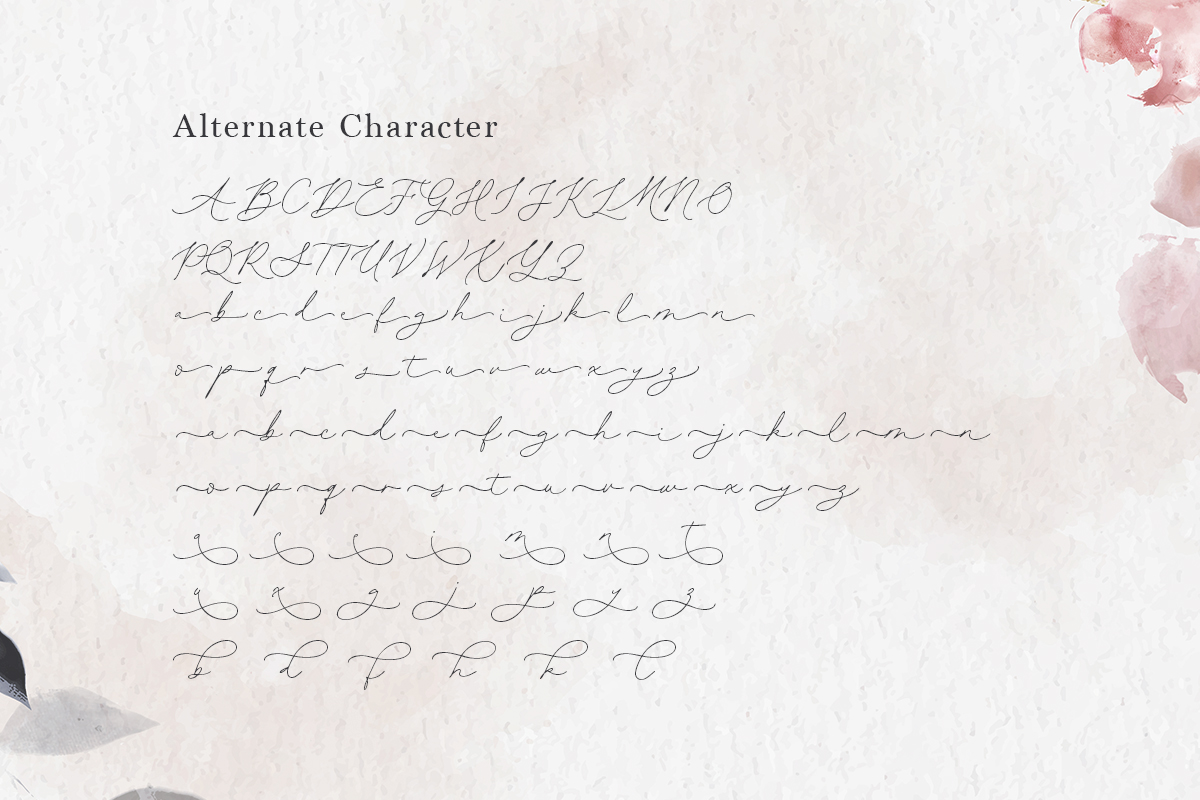 Alternate Character
A B C D E F G H I J K L M N O
P Q R S T T U V W X Y Z
a b c d e f g h i j k l m n
o p q r s t u v w x y z
a b c d e f g h i j k l m n
o p q r s t u v w x y z
a c e i m n t
u x g j p y z
b d f h k l